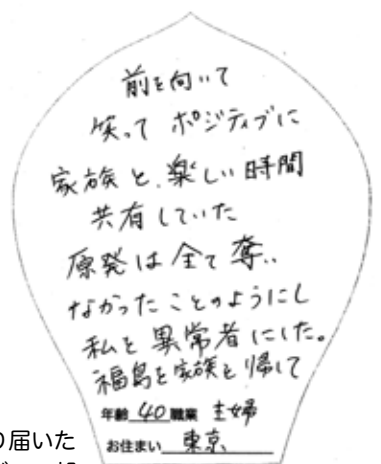 前を向いて
笑って ポジティブに
家族と、楽しい時間
共有していた
原発は全て奪..
なかったことのようにし
私を異常者にした。
福島を家族と帰して
年齢 40 職業 主婦
お住まい 東京
り届いた